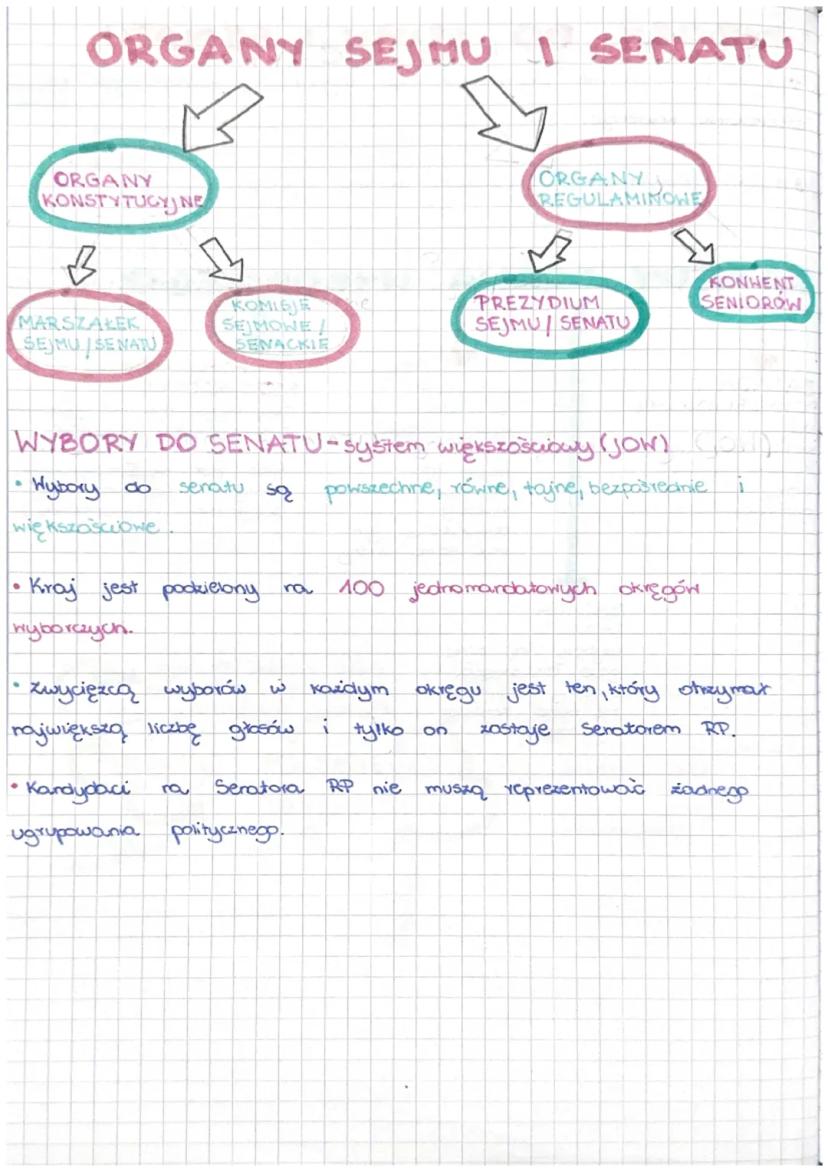 ORGANY SEJMU I SENATU
ORGANY
KONSTYTUCYJNE
ORGANY
REGULAMINOWE
MARSZAŁEK
SEJMU / SENATU
KOMISJE
SEJMOWE /
SENACKIE
PREZYDIUM
SEJMU / SENATU
KONWENT
SENIORÓW
WYBORY DO SENATU - system większościowy (JOW)
• Wybory do senatu są powszechne, równe, tajne, bezpośrednie i
większościowe.
• Kraj jest podzielony na 100 jednomandatowych okręgów
wyborczych.
• Zwycięzcą wyborów w każdym okręgu jest ten, który otrzymał
największą liczbę głosów i tylko on zostaje Senatorem RP.
• Kandydaci na Senatora RP nie muszą reprezentować żadnego
ugrupowania politycznego.